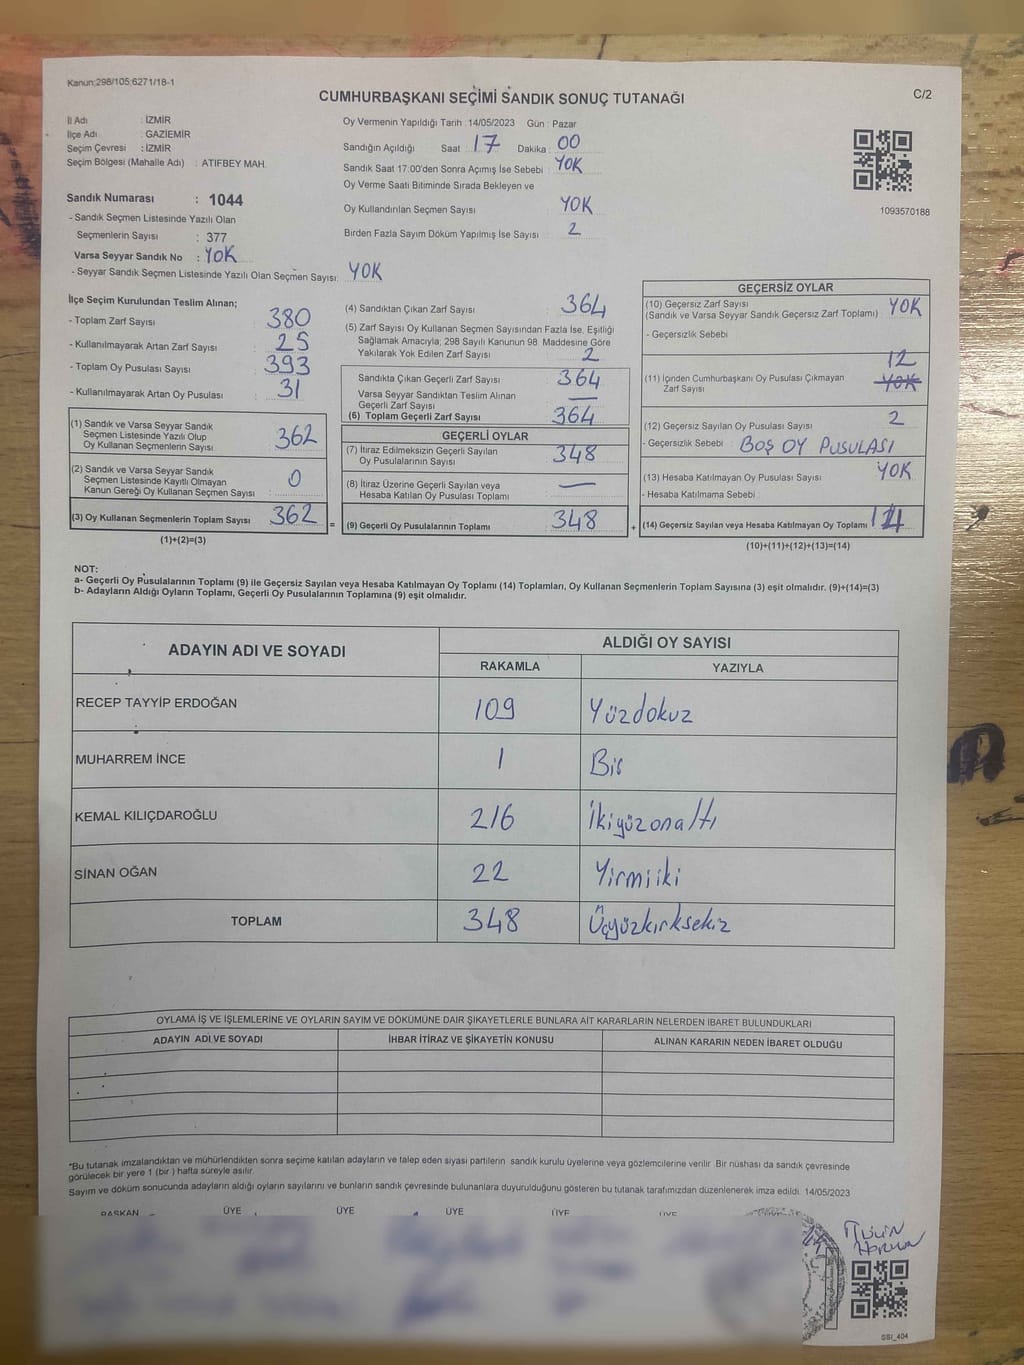 Kanun:298/105;6271/18-1
CUMHURBAŞKANI SEÇİMİ SANDIK SONUÇ TUTANAĞI
C/2
İl Adı : İZMİR
İlçe Adı : GAZİEMİR
Seçim Çevresi : İZMİR
Seçim Bölgesi (Mahalle Adı) : ATIFBEY MAH.
Sandık Numarası : 1044
- Sandık Seçmen Listesinde Yazılı Olan
Seçmenlerin Sayısı : 377
Varsa Seyyar Sandık No : YOK
- Seyyar Sandık Seçmen Listesinde Yazılı Olan Seçmen Sayısı: YOK
Oy Vermenin Yapıldığı Tarih :14/05/2023 Gün : Pazar
Sandığın Açıldığı Saat : 17 Dakika : 00
Sandık Saat 17:00'den Sonra Açımış İse Sebebi : YOK
Oy Verme Saati Bitiminde Sırada Bekleyen ve
Oy Kullandırılan Seçmen Sayısı YOK
Birden Fazla Sayım Döküm Yapılmış İse Sayısı : 2
1093570188
İlçe Seçim Kurulundan Teslim Alınan;
- Toplam Zarf Sayısı : 380
- Kullanılmayarak Artan Zarf Sayısı : 25
- Toplam Oy Pusulası Sayısı : 393
- Kullanılmayarak Artan Oy Pusulası : 31
(1) Sandık ve Varsa Seyyar Sandık
Seçmen Listesinde Yazılı Olup
Oy Kullanan Seçmenlerin Sayısı : 362
(2) Sandık ve Varsa Seyyar Sandık
Seçmen Listesinde Kayıtlı Olmayan
Kanun Gereği Oy Kullanan Seçmen Sayısı : 0
(3) Oy Kullanan Seçmenlerin Toplam Sayısı 362
(1)+(2)=(3)
(4) Sandıktan Çıkan Zarf Sayısı : 364
(5) Zarf Sayısı Oy Kullanan Seçmen Sayısından Fazla İse, Eşitliği
Sağlamak Amacıyla; 298 Sayılı Kanunun 98. Maddesine Göre
Yakılarak Yok Edilen Zarf Sayısı : 2
Sandıkta Çıkan Geçerli Zarf Sayısı : 364
Varsa Seyyar Sandıktan Teslim Alınan
Geçerli Zarf Sayısı : —
(6) Toplam Geçerli Zarf Sayısı : 364
GEÇERLİ OYLAR
(7) İtiraz Edilmeksizin Geçerli Sayılan
Oy Pusulalarının Sayısı : 348
(8) İtiraz Üzerine Geçerli Sayılan veya
Hesaba Katılan Oy Pusulası Toplamı : —
= (9) Geçerli Oy Pusulalarının Toplamı : 348
GEÇERSİZ OYLAR
(10) Geçersiz Zarf Sayısı : YOK
(Sandık ve Varsa Seyyar Sandık Geçersiz Zarf Toplamı)
- Geçersizlik Sebebi :
12
(11) İçinden Cumhurbaşkanı Oy Pusulası Çıkmayan YOK
Zarf Sayısı
(12) Geçersiz Sayılan Oy Pusulası Sayısı : 2
- Geçersizlik Sebebi : BOŞ OY PUSULASI
(13) Hesaba Katılmayan Oy Pusulası Sayısı : YOK
- Hesaba Katılmama Sebebi :
+ (14) Geçersiz Sayılan veya Hesaba Katılmayan Oy Toplamı 14
(10)+(11)+(12)+(13)=(14)
NOT:
a- Geçerli Oy Pusulalarının Toplamı (9) ile Geçersiz Sayılan veya Hesaba Katılmayan Oy Toplamı (14) Toplamları, Oy Kullanan Seçmenlerin Toplam Sayısına (3) eşit olmalıdır. (9)+(14)=(3)
b- Adayların Aldığı Oyların Toplamı, Geçerli Oy Pusulalarının Toplamına (9) eşit olmalıdır.
ADAYIN ADI VE SOYADI ALDIĞI OY SAYISI
RAKAMLA YAZIYLA
RECEP TAYYİP ERDOĞAN 109 Yüzdokuz
MUHARREM İNCE 1 Bir
KEMAL KILIÇDAROĞLU 216 İkiyüzonaltı
SİNAN OĞAN 22 Yirmiiki
TOPLAM 348 Üçyüzkırksekiz
OYLAMA İŞ VE İŞLEMLERİNE VE OYLARIN SAYIM VE DÖKÜMÜNE DAİR ŞİKAYETLERLE BUNLARA AİT KARARLARIN NELERDEN İBARET BULUNDUKLARI
ADAYIN ADI VE SOYADI İHBAR İTİRAZ VE ŞİKAYETİN KONUSU ALINAN KARARIN NEDEN İBARET OLDUĞU
*Bu tutanak imzalandıktan ve mühürlendikten sonra seçime katılan adayların ve talep eden siyasi partilerin sandık kurulu üyelerine veya gözlemcilerine verilir. Bir nüshası da sandık çevresinde
görülecek bir yere 1 (bir) hafta süreyle asılır.
Sayım ve döküm sonucunda adayların aldığı oyların sayılarını ve bunların sandık çevresinde bulunanlara duyurulduğunu gösteren bu tutanak tarafımızdan düzenlenerek imza edildi. 14/05/2023
BAŞKAN ÜYE ÜYE ÜYE ÜYE ÜYE
SSI_404